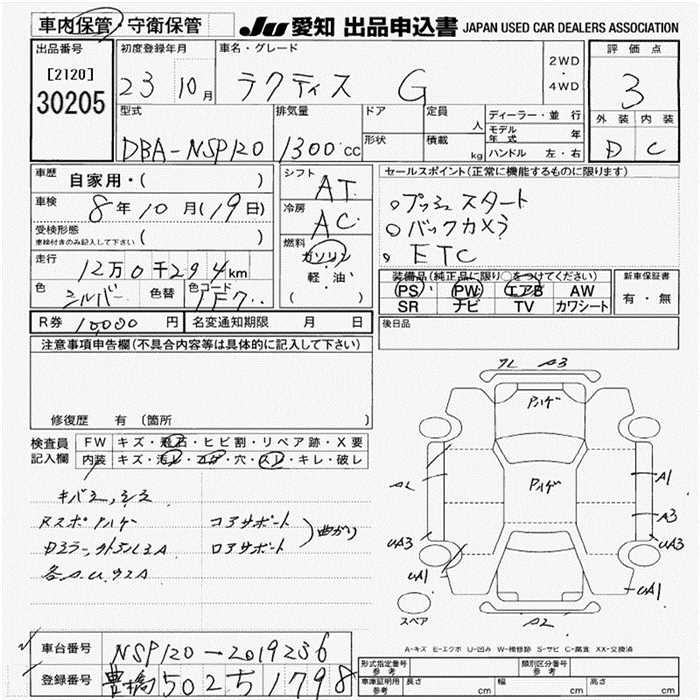 車内保管・守衛保管 JU 愛知 出品申込書 JAPAN USED CAR DEALERS ASSOCIATION
出品番号 初度登録年月 車名・グレード 評価点
[2120]
30205
23 10月 ラクティス G
2WD
・
4WD
3
型式 排気量 ドア 定員 人 ディーラー・並行 外装 内装
形状 積載 kg モデル年式 年
ハンドル 左・右
DBA-NSP120 1300cc D C
車歴 自家用・( )
シフト AT
セールスポイント(正常に機能するものに限ります)
車検 8年10月(19日)
冷房 AC
プッシュスタート
バックカメラ
ETC
受検形態 ( )
車検付きのみ記入して下さい
燃料 ガソリン
・
軽・油
( )
走行 12万0千294km
装備品(純正品に限り○をつけてください) 新車保証書
色 シルバー 色替 色コード 1F7
PS PW エアB AW 有・無
SR ナビ TV カワシート
R券 10,000円 名変通知期限 月 日
後日品
注意事項申告欄(不具合内容等は具体的に記入して下さい)
修復歴 有 (箇所
検査員 記入欄
FW キズ・飛石・ヒビ割・リペア跡・X要
内装 キズ・汚レ・コゲ・穴・スレ・キレ・破レ
A3
アハゲ
アハゲ
A1
A3
UA3
UA3
UA1
UA1
A2
スペア
コアサポート
ロアサポート
曲がり
A-キズ E-エクボ U-凹み W-補修跡 S-サビ C-腐食 XX-交換済
車台番号 NSP120-2019256
登録番号 豊橋502ち1798
形式指定番号 参考 類別区分番号 参考
車庫証明用 参考 長さ cm 幅 cm 高さ cm